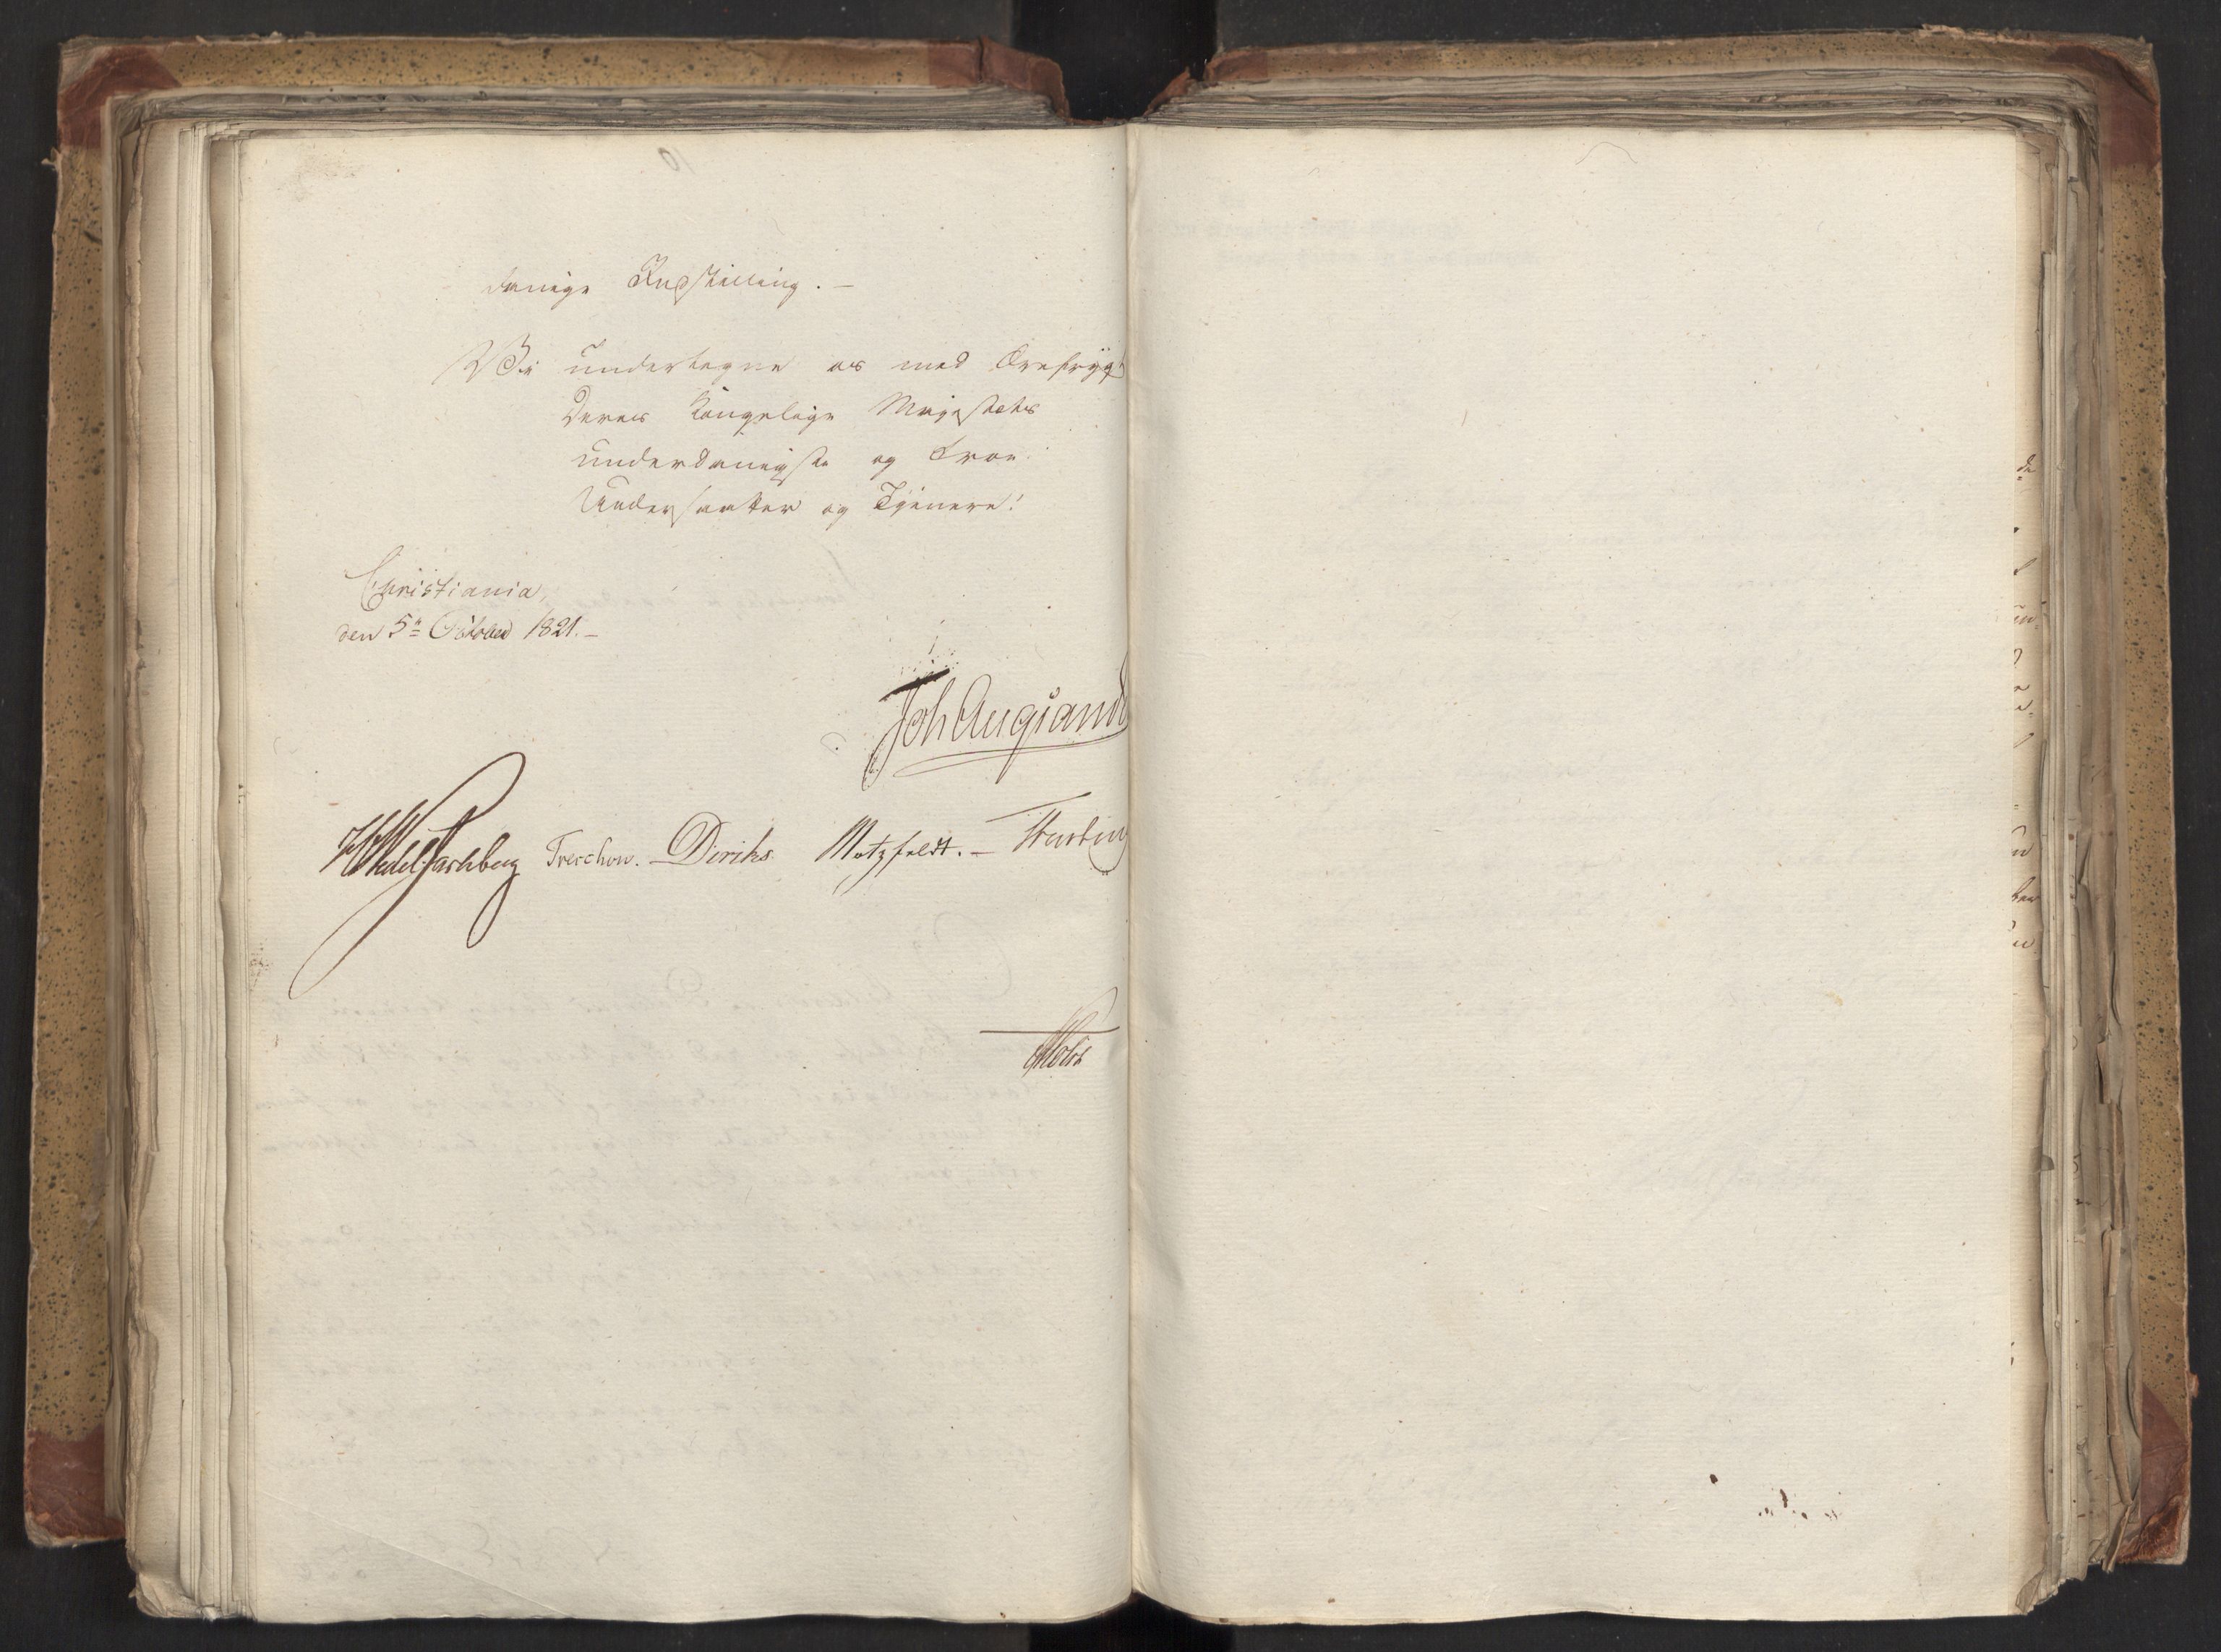 danige Indstilling. –
Vi undertegne os med Ærefrygt
Deres Kongelige Majestæts
underdanigste og troe
Undersaatter og Tjenere!
Christiania,
den 5te October 1821. –
Joh Aug Sandels
HWedel Jarlsberg Treschow. – Diriks Motzfeldt. –
Holst